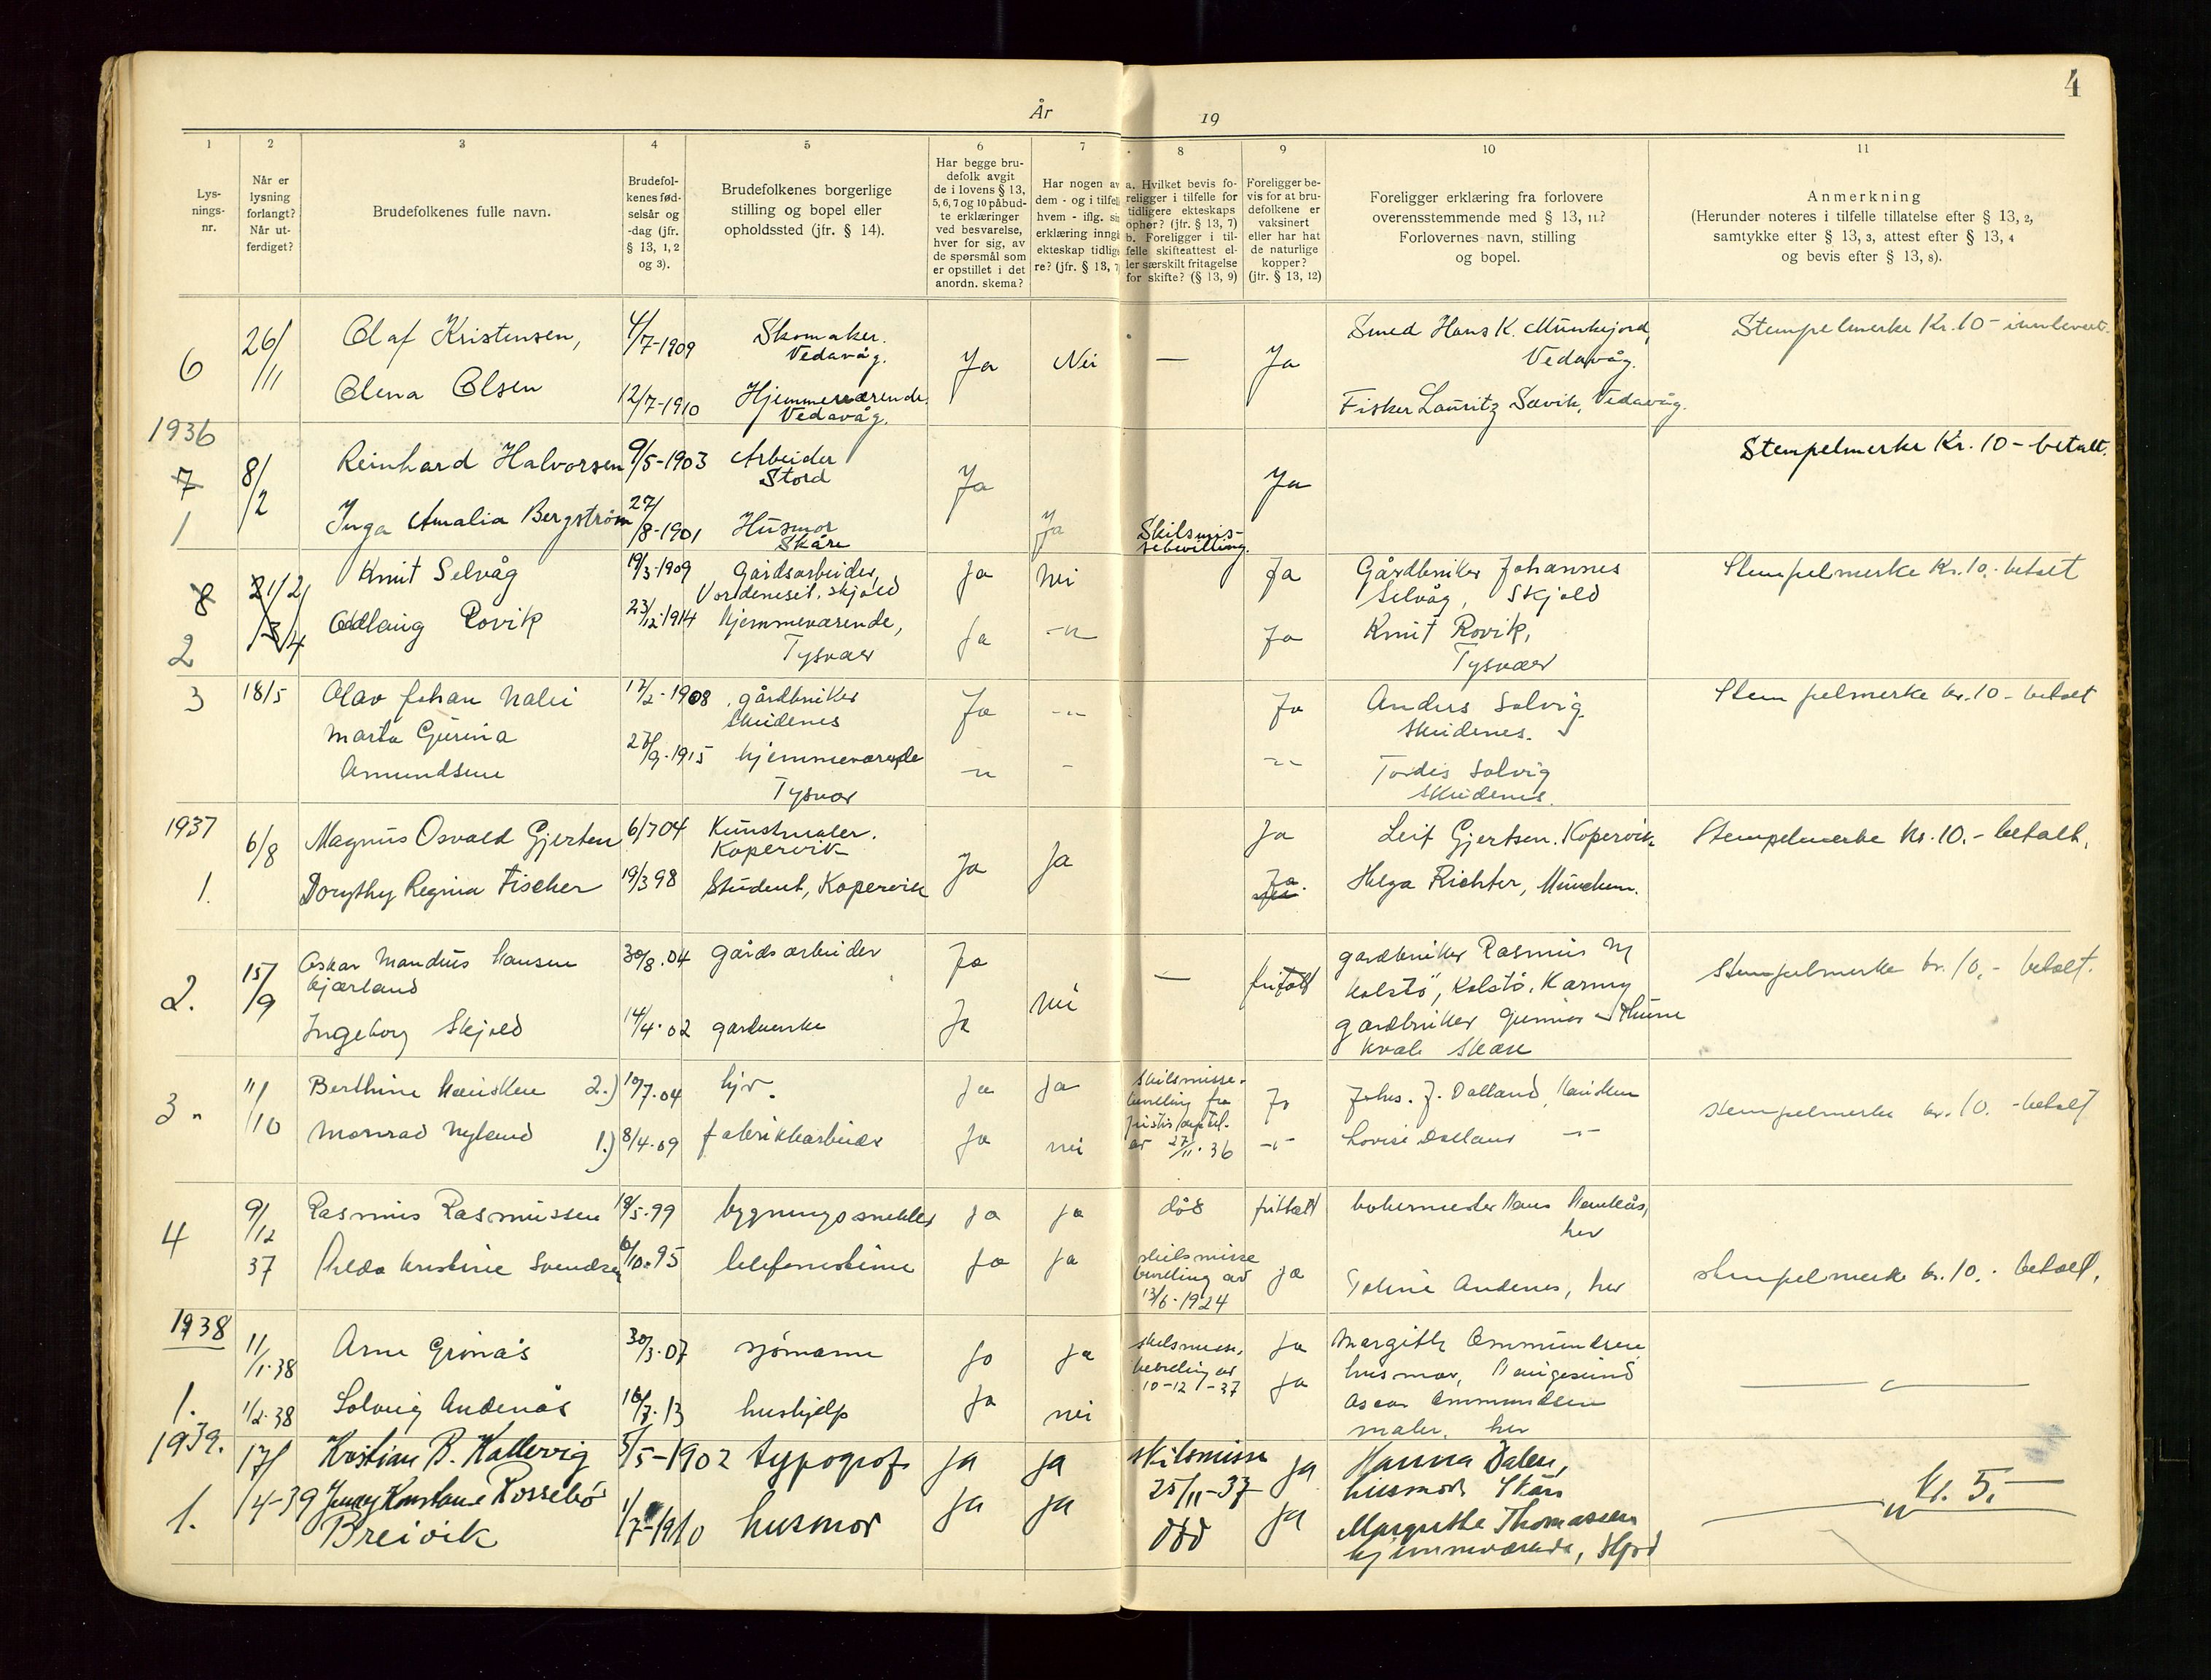 4
År 19
1
2
3
4
5
6
7
8
9
10
11
Lys-
nings-
nr.
Når er
lysning
forlangt?
Når ut-
ferdiget?
Brudefolkenes fulle navn.
Brudefol-
kenes fød-
selsår og
-dag (jfr.
§ 13, 1, 2
og 3).
Brudefolkenes borgerlige
stilling og bopel eller
opholdssted (jfr. § 14).
Har begge bru-
defolk avgit
de i lovens § 13,
5, 6, 7 og 10 påbud-
te erklæringer
ved besvarelse,
hver for sig, av
de spørsmål som
er opstillet i det
anordn. skema?
Har nogen av
dem - og i tilfelle
hvem - iflg. sin
erklæring inngå
ekteskap tidlige
re? (jfr. § 13, 7
a. Hvilket bevis fo-
religger i tilfelle for
tidligere ekteskaps
ophør? (jfr. § 13, 7)
b. Foreligger i til-
felle skifteattest el-
ler særskilt fritagelse
for skifte? (§ 13, 9)
Foreligger be-
vis for at bru-
defolkene er
vaksinert
eller har hat
de naturlige
kopper?
(jfr. § 13, 12)
Foreligger erklæring fra forlovere
overensstemmende med § 13, 11?
Forlovernes navn, stilling
og bopel.
Anmerkning
(Herunder noteres i tilfelle tillatelse efter § 13, 2,
samtykke efter § 13, 3, attest efter § 13, 4
og bevis efter § 13, 8).
6 26/11 Olaf Kristensen, 4/7-1909 Skomaker. Vedavåg. Ja Nei — Ja Smed Hans K. Munkejord, Vedavåg. Stempelmerke Kr. 10 - innlevert.
Olena Olsen 12/7-1910 Hjemmeværende. Vedavåg. Fisker Lauritz Sævik, Vedavåg.
1936
7 8/2 Reinhard Halvorsen 9/5-1903 Arbeider Stord Ja Ja Stempelmerke Kr. 10 - betalt.
1 Inga Amalia Bergström 27/8-1901 Husmor Skåre Ja Skilsmis-
sebevilling.
8 21/2 Knut Selvåg 19/3-1909 Gårdsarbeider, Skjold Ja Nei Ja Gårdbruker Johannes Selvåg, Skjold Stempelmerke Kr. 10.- betalt
2 3/4 Odlaug Rovik 23/12-1914 hjemmeværende, Tysvær Ja -"- Ja Knut Rovik, Tysvær
3 18/5 Olav Johan 17/2-1908 gårdbruker Skudenes Ja -"- Ja Anders Solvig Skudenes. Stempelmerke kr. 10 - betalt
Marta Gurina
Amundsen 27/9-1915 hjemmeværende Tysvær -"- - -"- Tordis Solvig Skudenes.
1937
6/8 Magnus Osvald Gjertsen 6/7 04 Kunstmaler. Kopervik Ja Ja Ja Leif Gjertsen. Kopervik Stempelmerke Kr. 10.- betalt.
1. Dorythy Regina Fischer 19/3 98 Student, Kopervik Ja. Helga Richter, München.
2. 15/9 Oskar Mandius Hansen
Kjærland 30/8.04 gårdsarbeider Ja nei — fritatt gardbruker Rasmus M
Kolstø, Kolstø, Karmøy Stempelmerke kr. 10.- betalt.
Ingeborg Skjold 14/4.02 Ja gardbruker Gunnar
3. 11/10 Berthine 2.) 10/7.04 hjv. Ja Ja skilsmisse-
av 27/11.36 Ja Johs. J. Dalland, Stempelmerke kr. 10. - betalt
Monrad Nyland 1.) 8/4.09 fabrikkarbeider Ja nei -"- Lovise Dalland -"-
4 9/12 37 Rasmus Rasmussen 18/5.99 bygningssnekker Ja Ja død fritatt her
Hilda Kristine Svendsen 6/10.95 telefonistinne Ja Ja skilsmisse
bevilling av
13/6-1924 Ja Toline Andenes, her Stempelmerke kr. 10.- betalt.
1938
11/1.38 Arne Grønås 30/3.07 sjømann Ja Ja skilsmisse,
bevilling av
10-12-37 Ja Margith Ommundsen
husmor, Haugesund
1. 1/2.38 Solveig Andenås 16/7.13 hushjelp Ja nei Ja Oscar Ommundsen
maler, her
1939.
17/4-39 Kristian B. Kallevig 5/5-1902 typograf Ja Ja Skilsmisse
25/11-37 Ja Hanna Dalen,
husmor Skåre Kr. 5.—
1. Jenny Konstanse Rossebø
Breivik 1/7-1910 husmor Ja Ja død Ja Margrethe Thomassen
hjemmeværende,